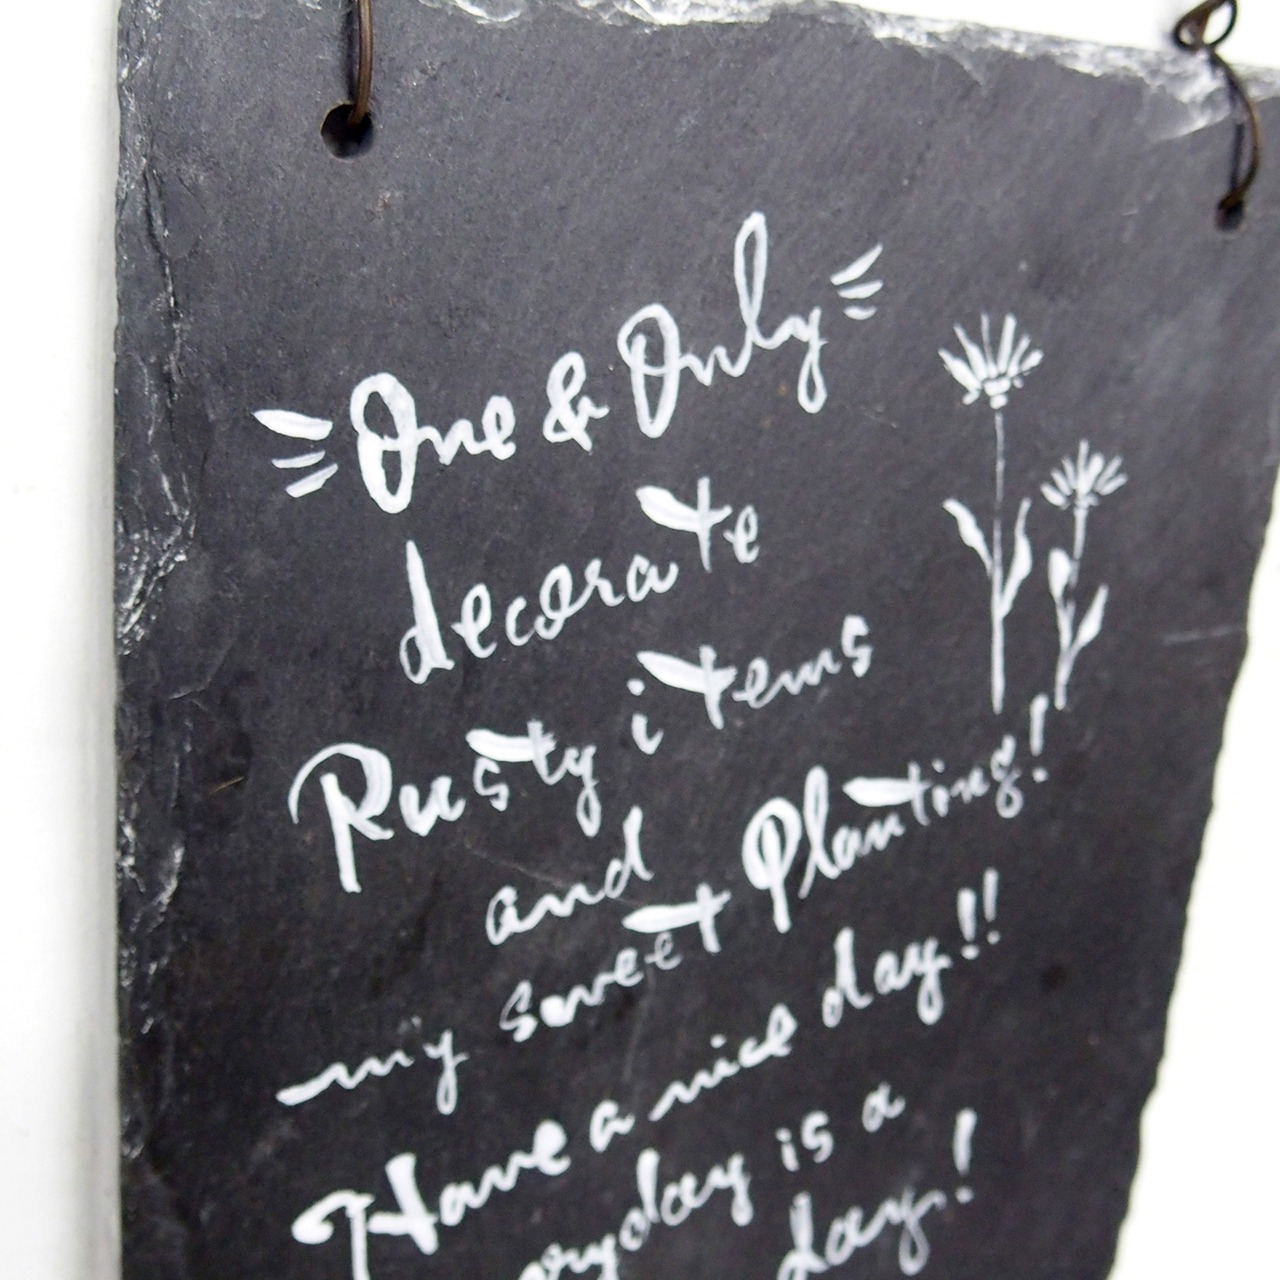 One & Only
decorate
Rusty items
and
my sweet Planting!
Have a nice day!!
is a
day!